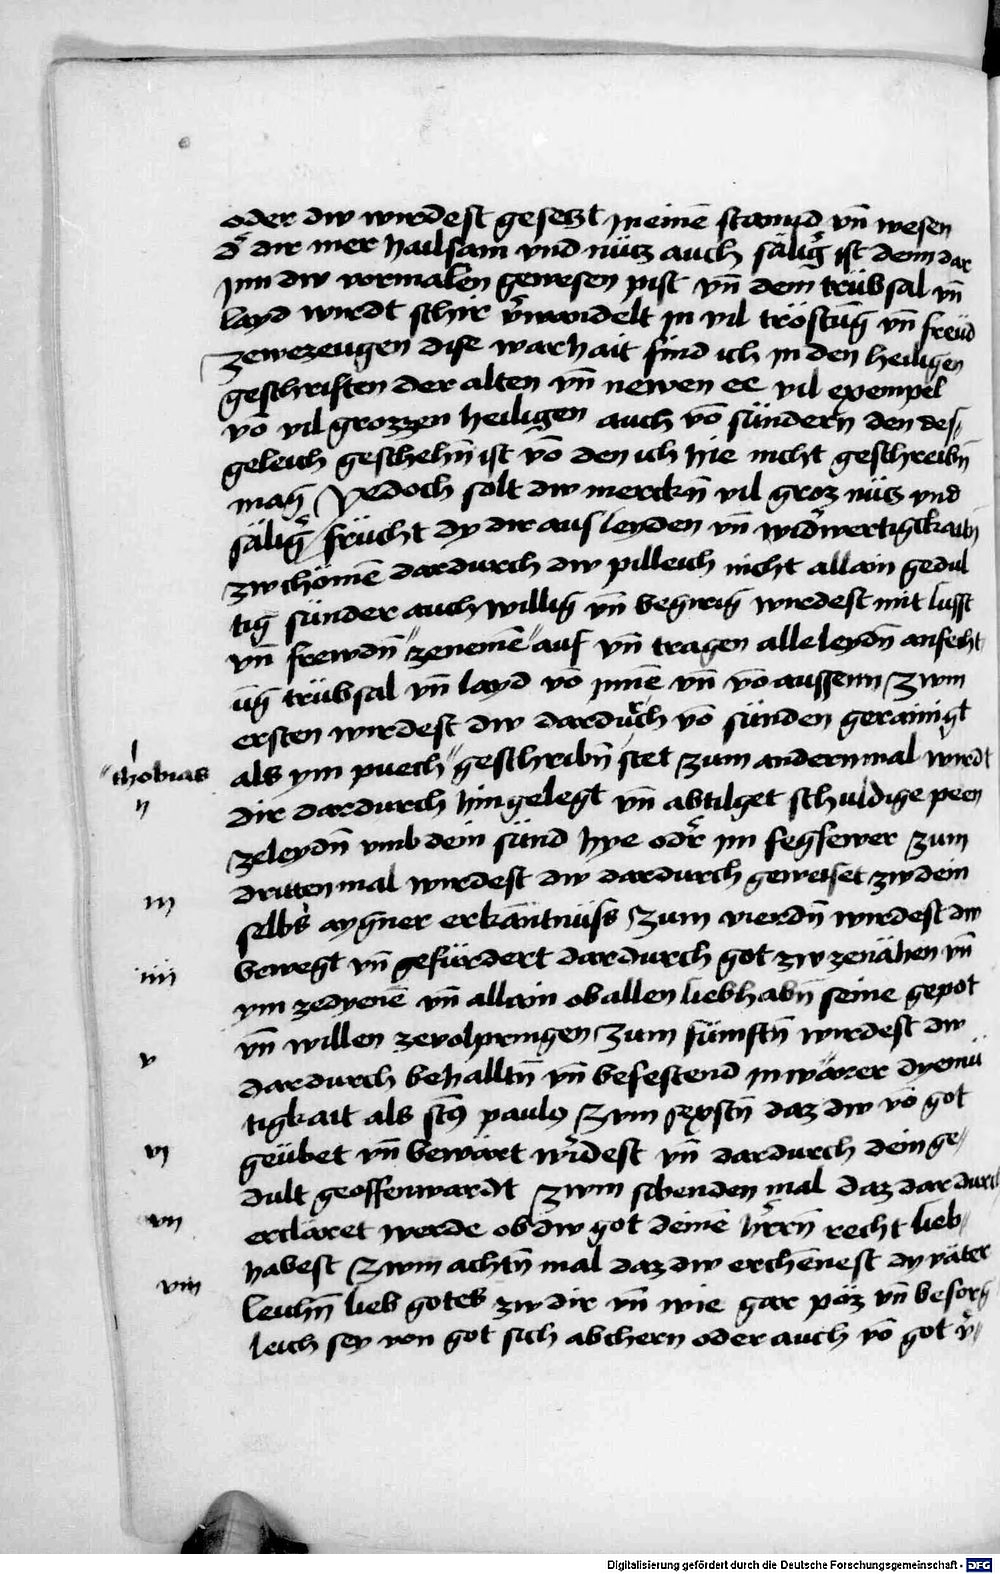 oder dw wirdest gesetzt in einē stannd vñ wesen
d̄ dir mer hailsam vnd nütz auch sälig̃ ist denn dar
jnn dw vormalen gewesen pist vñ dein trübsal vñ
layd wirdt schir v̄wandelt in vil tröstūg vñ freüd
zewezeugen dise warhait find ich in den heiligen
geschriften der alten vñ newen ee vil exempel
vō vil grozzen heiligen auch vō sündern den des⸗
geleich geschehñ ist vō den ich hie nicht geschreibñ
mag Yedoch solt dw merckñ vil groz nütz vnd
sälig̃ frücht dy dir aus leyden vñ wid̄wertigckaitñ
zwchömē dardurch dw pilleich nicht allain gedul
tig sünder auch willig vñ begirig wirdest mit lusst
vñ frewdñ "zenemē" auf vñ tragen alle leydñ anfecht
ūg trübsal vñ layd vō innē vñ vō aussenn Zwm
ersten wirdest dw dardurch vō sünden gerainigt
"thobias
als ym puech "geschribñ stet Zum andern mal wirdt
ij
dir dardurch hingelegt vñ abtilget schuldige peen
zeleydñ vmb dein sünd hye od̄r im fegfewer Zum
iij
dritten mal wirdest dw dardurch geweiset zw dein
selbs aygner erkäntnüss Zum vierdñ wirdest dw
iiij
bewegt vñ gefürdert dardurch got zw zenähen vñ
ym zedyenē vñ allain ob allen liebhabñ seine gepot
vñ willen zevolpringen Zum fümftñ wirdest dw
v
dardurch behalltñ vñ befestend in warer dyemü
tigkait als sctꝰ paulꝰ Zwm sexstñ daz dw vō got
vj
geübet vñ bewärt wirdest vñ dardurch dein ge⸗
dult geoffenwardt Zwm sibenden mal daz dardurch
vij
ercläret werde ob dw got deinē hr̄rñ recht lieb⸗
habest Zwm achtñ mal daz dw erchēnest dy väter
viij
leichñ lieb gotes zw dir vñ wie gar pöz vñ besorg
leich sey von got sich abchern oder auch vō got v̄⸗
Digitalisierung gefördert durch die Deutsche Forschungsgemeinschaft - DFG